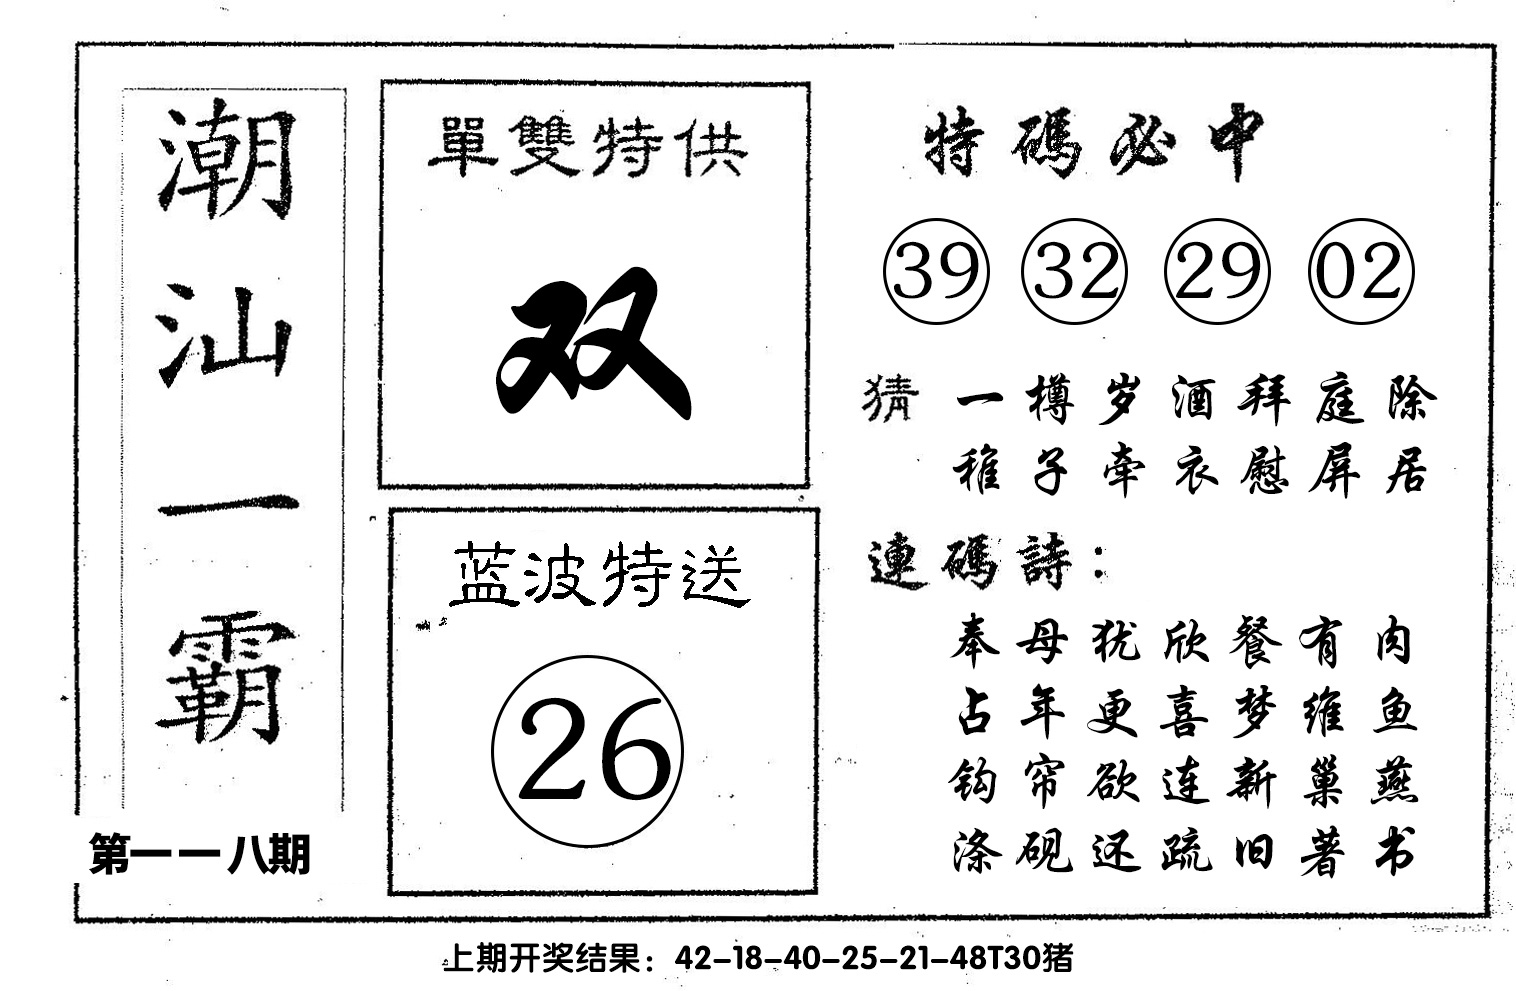 潮汕一霸
第一一八期
單雙特供
双
蓝波特送
26
特碼必中
39 32 29 02
猜 一樽岁酒拜庭除
稚子牵衣慰屏居
連碼詩：
奉母犹欣餐有肉
占年更喜梦维鱼
钩帘欲连新巢燕
涤砚还疏旧著书
上期开奖结果：42-18-40-25-21-48T30猪